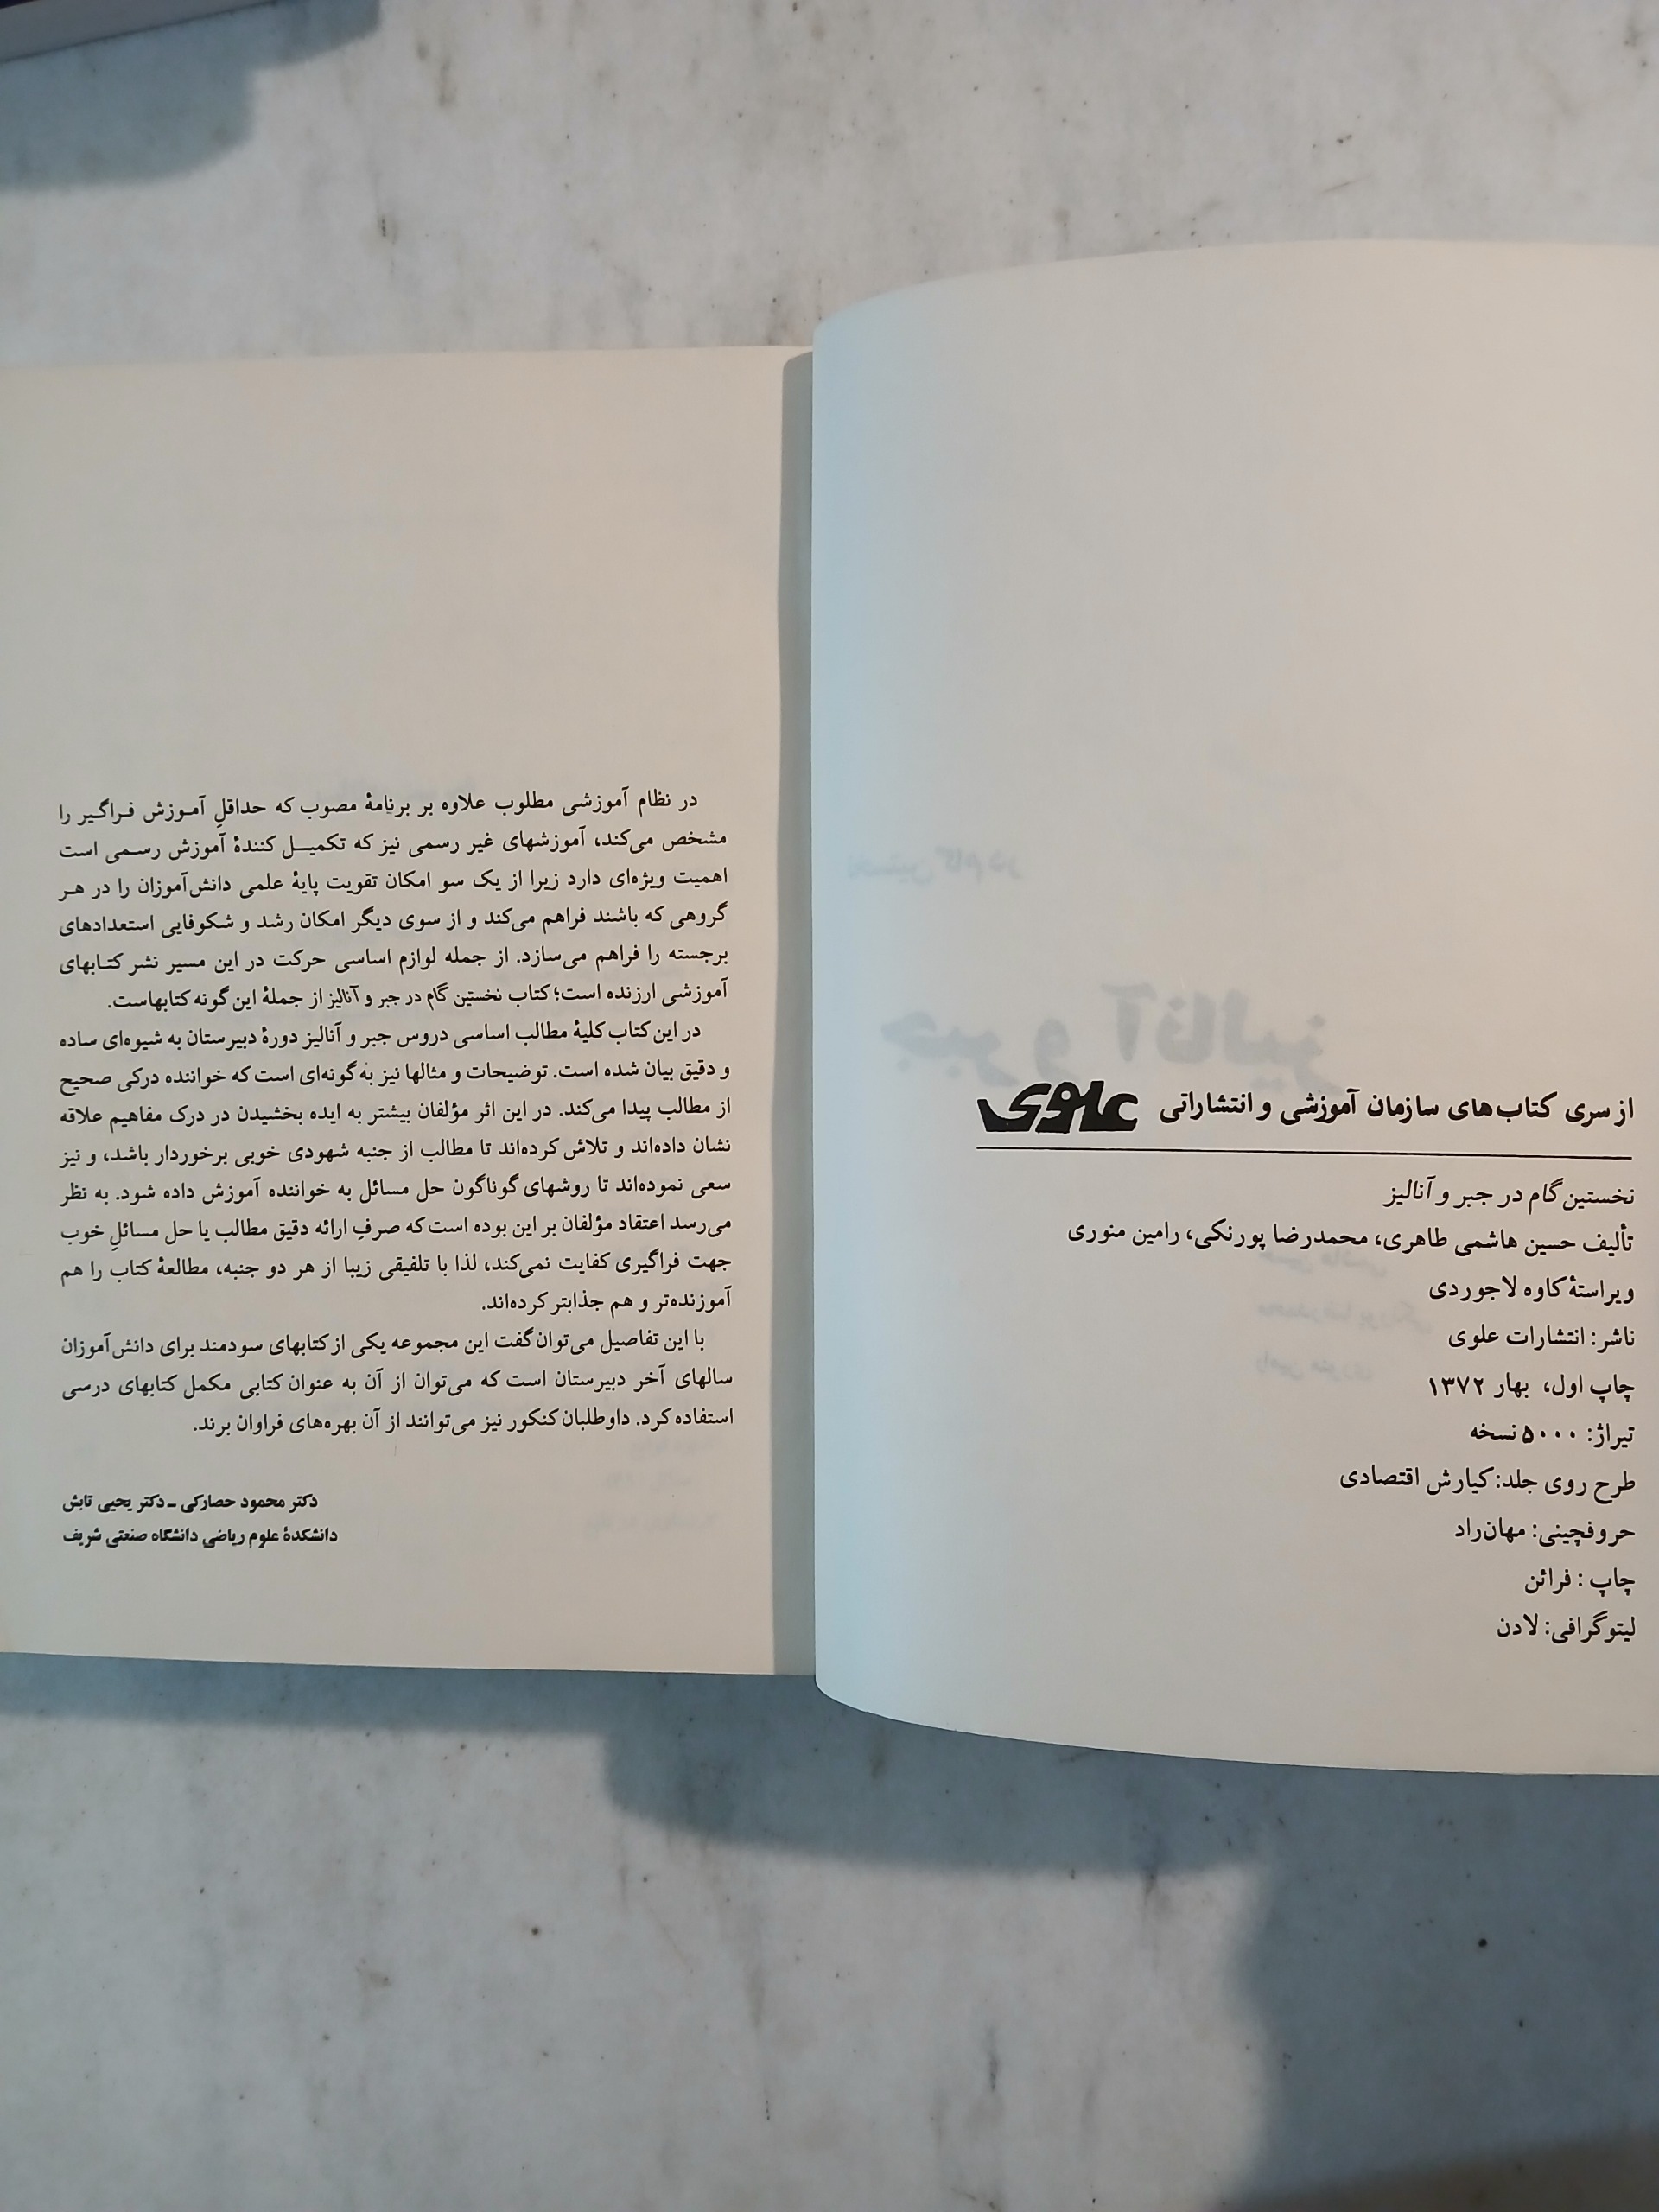 از سری کتاب‌های سازمان آموزشی و انتشاراتی علوی
نخستین گام در جبر و آنالیز
تألیف حسین هاشمی طاهری، محمدرضا پورنکی، رامین منوری
ویراستهٔ کاوه لاجوردی
ناشر: انتشارات علوی
چاپ اول، بهار ۱۳۷۲
تیراژ: ۵۰۰۰ نسخه
طرح روی جلد: کیارش اقتصادی
حروفچینی: مهان‌راد
چاپ : فرائن
لیتوگرافی: لادن
در نظام آموزشی مطلوب علاوه بر برنامهٔ مصوب که حداقلِ آموزش فراگیر را
مشخص می‌کند، آموزشهای غیر رسمی نیز که تکمیل کنندهٔ آموزش رسمی است
اهمیت ویژه‌ای دارد زیرا از یک سو امکان تقویت پایهٔ علمی دانش‌آموزان را در هر
گروهی که باشند فراهم می‌کند و از سوی دیگر امکان رشد و شکوفایی استعدادهای
برجسته را فراهم می‌سازد. از جمله لوازم اساسی حرکت در این مسیر نشر کتابهای
آموزشی ارزنده است؛ کتاب نخستین گام در جبر و آنالیز از جملهٔ این گونه کتابهاست.
در این کتاب کلیهٔ مطالب اساسی دروس جبر و آنالیز دورهٔ دبیرستان به شیوه‌ای ساده
و دقیق بیان شده است. توضیحات و مثالها نیز به گونه‌ای است که خواننده درکی صحیح
از مطالب پیدا می‌کند. در این اثر مؤلفان بیشتر به ایده بخشیدن در درک مفاهیم علاقه
نشان داده‌اند و تلاش کرده‌اند تا مطالب از جنبه شهودی خوبی برخوردار باشد، و نیز
سعی نموده‌اند تا روشهای گوناگون حل مسائل به خواننده آموزش داده شود. به نظر
می‌رسد اعتقاد مؤلفان بر این بوده است که صرفِ ارائه دقیق مطالب یا حل مسائلِ خوب
جهت فراگیری کفایت نمی‌کند، لذا با تلفیقی زیبا از هر دو جنبه، مطالعهٔ کتاب را هم
آموزنده‌تر و هم جذابتر کرده‌اند.
با این تفاصیل می‌توان گفت این مجموعه یکی از کتابهای سودمند برای دانش‌آموزان
سالهای آخر دبیرستان است که می‌توان از آن به عنوان کتابی مکمل کتابهای درسی
استفاده کرد. داوطلبان کنکور نیز می‌توانند از آن بهره‌های فراوان برند.
دکتر محمود حصارکی ـ دکتر یحیی تابش
دانشکدهٔ علوم ریاضی دانشگاه صنعتی شریف